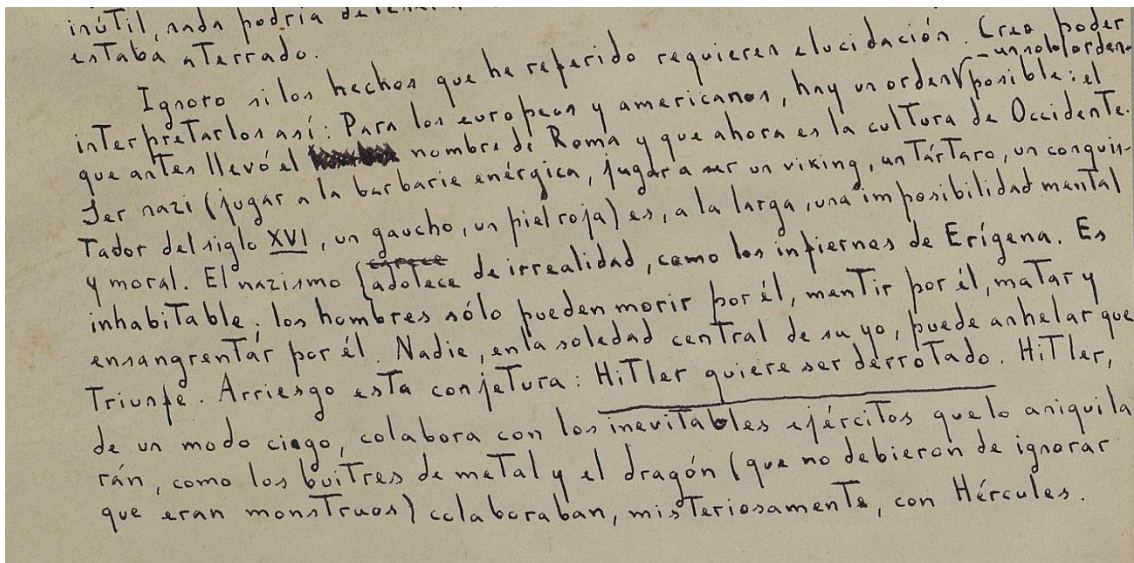 inútil, nada podría
estaba aterrado.
Ignoro si los hechos que he referido requieren elucidación. Creo poder
interpretarlos así: Para los europeos y americanos, hay un orden -un solo orden- posible: el
que antes llevó el nombre de Roma y que ahora es la cultura de Occidente.
Ser nazi (jugar a la barbarie enérgica, jugar a ser un viking, un tártaro, un conquis-
tador del siglo XVI, un gaucho, un piel roja) es, a la larga, una imposibilidad mental
y moral. El nazismo {adolece de irrealidad, como los infiernos de Erígena. Es
inhabitable; los hombres sólo pueden morir por él, mentir por él, matar y
ensangrentar por él. Nadie, en la soledad central de su yo, puede anhelar que
triunfe. Arriesgo esta conjetura: Hitler quiere ser derrotado. Hitler,
de un modo ciego, colabora con los inevitables ejércitos que lo aniquila
rán, como los buitres de metal y el dragón (que no debieron de ignorar
que eran monstruos) colaboraban, misteriosamente, con Hércules.